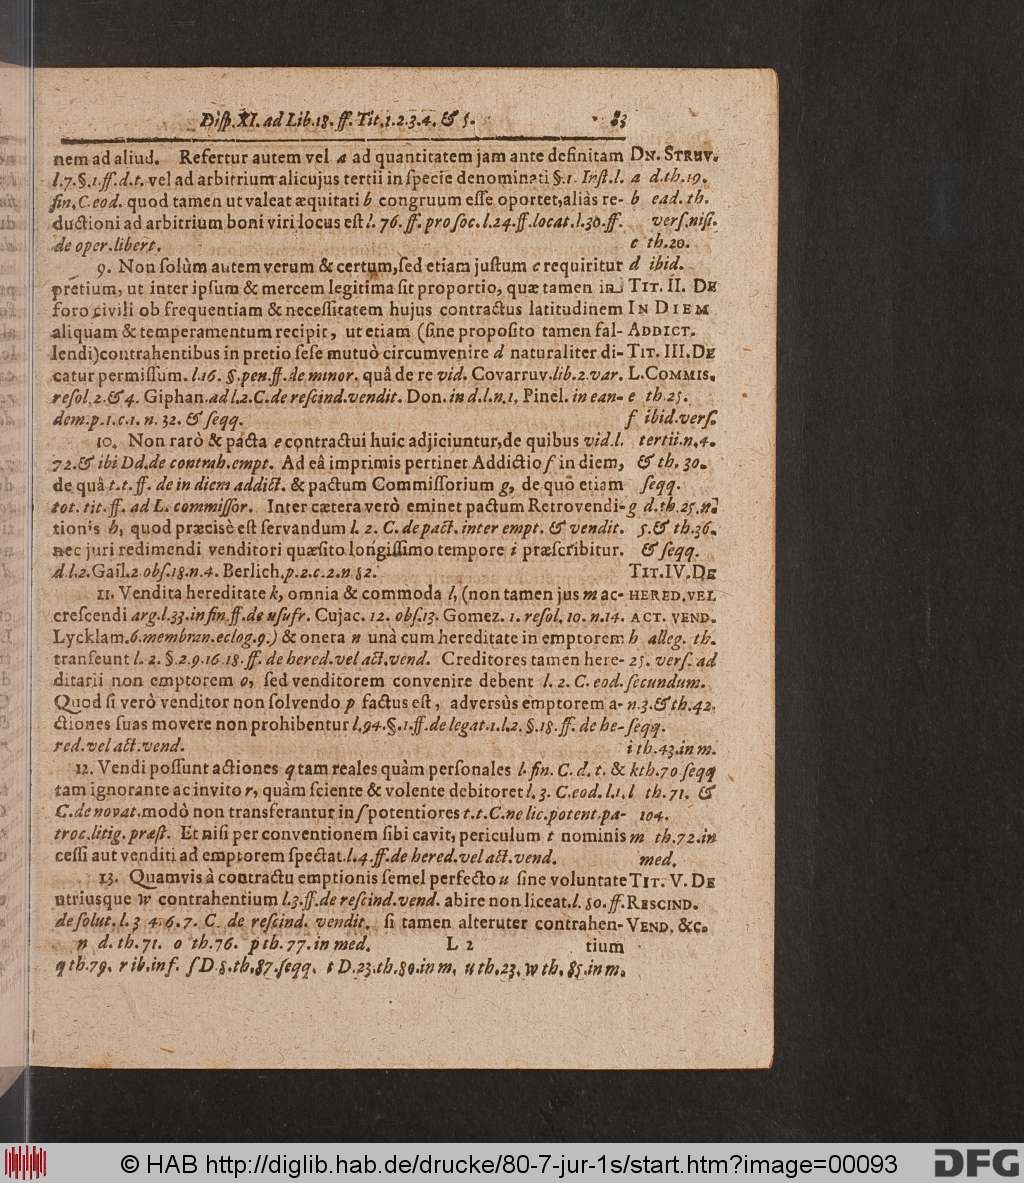 Disp. XI. ad Lib. 18. ff. Tit. 1. 2. 3. 4. & 5. 83
nem ad aliud. Refertur autem vel a ad quantitatem jam ante definitam
l. 7. §. 1. ff. d. t. vel ad arbitrium alicujus tertii in specie denominati §. 1. Inst. l.
fin. C. eod. quod tamen ut valeat æquitati b congruum esse oportet, aliàs re-
ductioni ad arbitrium boni viri locus est l. 76. ff. pro soc. l. 24. ff. locat. l. 30. ff.
de oper. libert.
9. Non solùm autem verum & certum, sed etiam justum c requiritur
pretium, ut inter ipsum & mercem legitima sit proportio, quæ tamen in
foro civili ob frequentiam & necessitatem hujus contractus latitudinem
aliquam & temperamentum recipit, ut etiam (sine proposito tamen fal-
lendi) contrahentibus in pretio sese mutuò circumvenire d naturaliter di-
catur permissum. l. 16. §. pen. ff. de minor. quâ de re vid. Covarruv. lib. 2. var.
resol. 2. & 4. Giphan. ad l. 2. C. de rescind. vendit. Don. in d. l. n. 1. Pinel. in ean-
dem. p. 1. c. 1. n. 32. & seqq.
10. Non rarò & pacta e contractui huic adjiciuntur, de quibus vid. l.
72. & ibi Dd. de contrah. empt. Ad eâ imprimis pertinet Addictio f in diem,
de quâ t. t. ff. de in diem addict. & pactum Commissorium g, de quô etiam
tot. tit. ff. ad L. commissor. Inter cætera verò eminet pactum Retrovendi-
tionis h, quod præcisè est servandum l. 2. C. de pact. inter empt. & vendit.
nec juri redimendi venditori quæsito longissimo tempore i præscribitur.
d. l. 2. Gail. 2 obs. 18. n. 4. Berlich. p. 2. c. 2. n 82.
11. Vendita hereditate k, omnia & commoda l, (non tamen jus m ac-
crescendi arg. l. 33. in fin. ff. de usufr. Cujac. 12. obs. 13. Gomez. 1. resol. 10. n. 14.
Lycklam. 6. membran. eclog. 9.) & onera n unà cum hereditate in emptorem
transeunt l. 2. §. 2. 9. 16 18. ff. de hered. vel act. vend. Creditores tamen here-
ditarii non emptorem o, sed venditorem convenire debent l. 2. C. eod.
Quod si verò venditor non solvendo p factus est, adversùs emptorem a-
ctiones suas movere non prohibentur l. 94. §. 1. ff. de legat. 1. l. 2. §. 18. ff. de he-
red. vel act. vend.
12. Vendi possunt actiones q tam reales quàm personales l. fin. C. d. t. &
tam ignorante ac invito r, quàm sciente & volente debitore t l. 3. C. eod. l. 1.
C. de novat. modò non transferantur in s potentiores t. t. C. ne lic. potent. pa-
troc. litig. præst. Et nisi per conventionem sibi cavit, periculum t nominis
cessi aut venditi ad emptorem spectat. l. 4. ff. de hered. vel act. vend.
13. Quamvis à contractu emptionis semel perfecto u sine voluntate
utriusque w contrahentium l. 3. ff. de rescind. vend. abire non liceat. l. 80. ff.
de solut. l. 3 4. 6. 7. C. de rescind. vendit. si tamen alteruter contrahen-
L 2 tium
DN. STRUV.
a d. th. 19.
b ead. th.
vers. nisi.
c th. 20.
d ibid.
TIT. II. DE
IN DIEM
ADDICT.
TIT. III. DE
L. COMMIS.
e th. 25.
f ibid. vers.
tertii. n. 4.
& th. 30.
seqq.
g d. th. 25. n.
5. & th. 36.
& seqq.
TIT. IV. DE
HERED. VEL
ACT. VEND.
h alleg. th.
25. vers. ad
secundum.
n. 3. & th. 42.
seqq.
i th. 43. in m.
k th. 70 seqq
l th. 71. &
104.
m th. 72. in
med.
TIT. V. DE
RESCIND.
VEND. &c.
n d. th. 71. o th. 76. p th. 77. in med.
q th. 79. r ib. inf. s D. 8. th. 87. seqq. t D. 23. th. 80. in m. u th. 23. w th. 85. in m.
© HAB http://diglib.hab.de/drucke/80-7-jur-1s/start.htm?image=00093
DFG